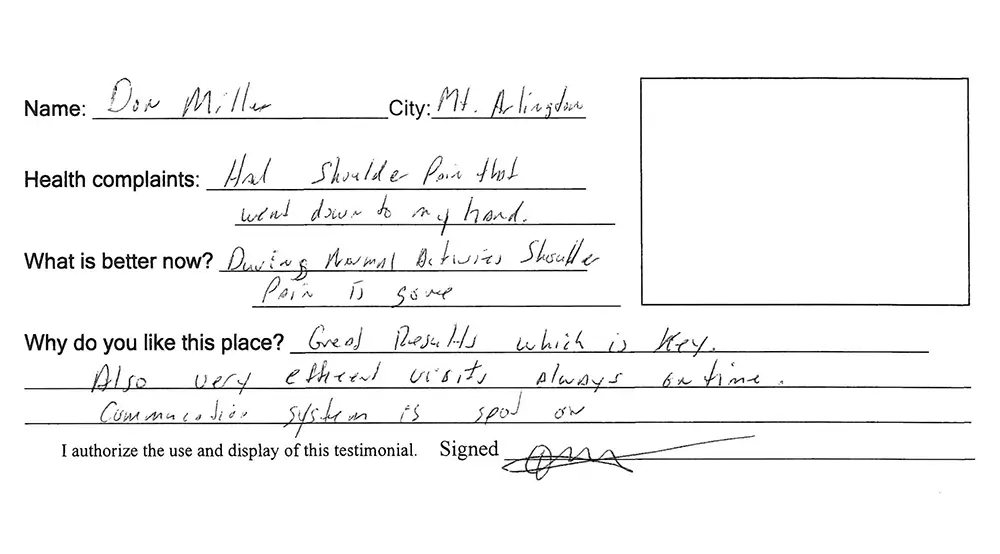 Name: Don Miller City: Mt. Arlington
Health complaints: Had Shoulder Pain that
went down to my hand.
What is better now? During Normal Activities Shoulder
Pain is gone
Why do you like this place? Great Results which is key.
Also very efficient visits always on time.
Communication system is spot on
I authorize the use and display of this testimonial. Signed